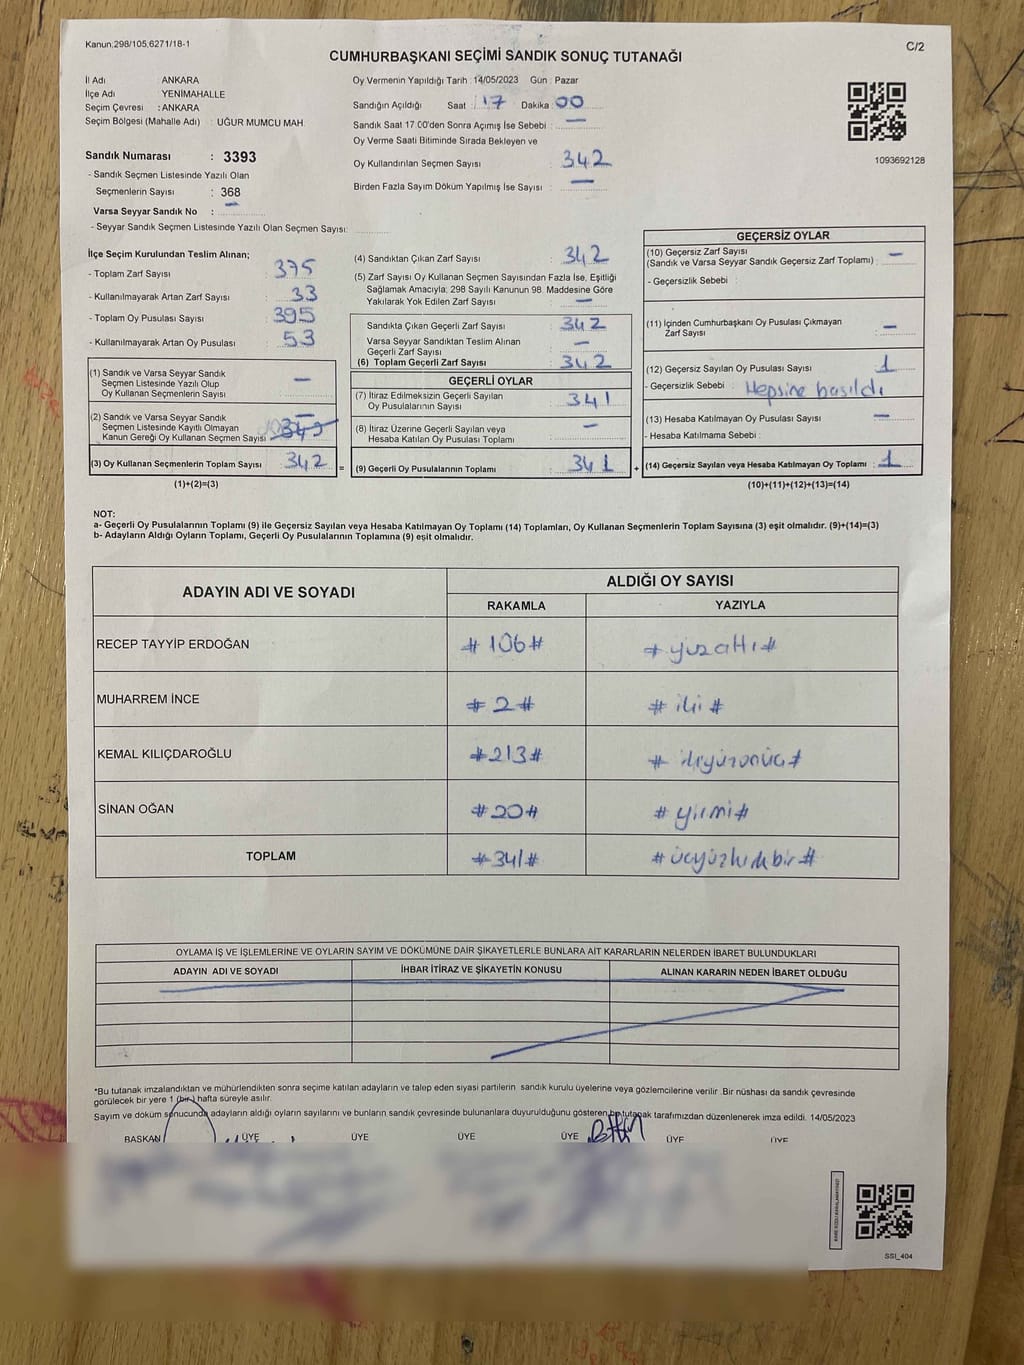 Kanun:298/105,6271/18-1
C/2
CUMHURBAŞKANI SEÇİMİ SANDIK SONUÇ TUTANAĞI
İl Adı ANKARA
İlçe Adı YENİMAHALLE
Seçim Çevresi : ANKARA
Seçim Bölgesi (Mahalle Adı) : UĞUR MUMCU MAH.
Sandık Numarası : 3393
- Sandık Seçmen Listesinde Yazılı Olan
Seçmenlerin Sayısı : 368
Varsa Seyyar Sandık No : —
- Seyyar Sandık Seçmen Listesinde Yazılı Olan Seçmen Sayısı:
Oy Vermenin Yapıldığı Tarih : 14/05/2023 Gün : Pazar
Sandığın Açıldığı Saat : 17 Dakika : 00
Sandık Saat 17.00'den Sonra Açımış İse Sebebi : —
Oy Verme Saati Bitiminde Sırada Bekleyen ve
Oy Kullandırılan Seçmen Sayısı : 342
Birden Fazla Sayım Döküm Yapılmış İse Sayısı : —
1093692128
İlçe Seçim Kurulundan Teslim Alınan;
- Toplam Zarf Sayısı : 375
- Kullanılmayarak Artan Zarf Sayısı : 33
- Toplam Oy Pusulası Sayısı : 395
- Kullanılmayarak Artan Oy Pusulası : 53
(1) Sandık ve Varsa Seyyar Sandık
Seçmen Listesinde Yazılı Olup
Oy Kullanan Seçmenlerin Sayısı : —
(2) Sandık ve Varsa Seyyar Sandık
Seçmen Listesinde Kayıtlı Olmayan
Kanun Gereği Oy Kullanan Seçmen Sayısı : —
(3) Oy Kullanan Seçmenlerin Toplam Sayısı : 342
(1)+(2)=(3)
=
(4) Sandıktan Çıkan Zarf Sayısı : 342
(5) Zarf Sayısı Oy Kullanan Seçmen Sayısından Fazla İse, Eşitliği
Sağlamak Amacıyla; 298 Sayılı Kanunun 98. Maddesine Göre
Yakılarak Yok Edilen Zarf Sayısı : —
Sandıkta Çıkan Geçerli Zarf Sayısı : 342
Varsa Seyyar Sandıktan Teslim Alınan
Geçerli Zarf Sayısı : —
(6) Toplam Geçerli Zarf Sayısı : 342
GEÇERLİ OYLAR
(7) İtiraz Edilmeksizin Geçerli Sayılan
Oy Pusulalarının Sayısı : 341
(8) İtiraz Üzerine Geçerli Sayılan veya
Hesaba Katılan Oy Pusulası Toplamı : —
(9) Geçerli Oy Pusulalarının Toplamı : 341
+
GEÇERSİZ OYLAR
(10) Geçersiz Zarf Sayısı
(Sandık ve Varsa Seyyar Sandık Geçersiz Zarf Toplamı) : —
- Geçersizlik Sebebi :
(11) İçinden Cumhurbaşkanı Oy Pusulası Çıkmayan
Zarf Sayısı : —
(12) Geçersiz Sayılan Oy Pusulası Sayısı : 1
- Geçersizlik Sebebi : Hepsine basıldı
(13) Hesaba Katılmayan Oy Pusulası Sayısı : —
- Hesaba Katılmama Sebebi :
(14) Geçersiz Sayılan veya Hesaba Katılmayan Oy Toplamı : 1
(10)+(11)+(12)+(13)=(14)
NOT:
a- Geçerli Oy Pusulalarının Toplamı (9) ile Geçersiz Sayılan veya Hesaba Katılmayan Oy Toplamı (14) Toplamları, Oy Kullanan Seçmenlerin Toplam Sayısına (3) eşit olmalıdır. (9)+(14)=(3)
b- Adayların Aldığı Oyların Toplamı, Geçerli Oy Pusulalarının Toplamına (9) eşit olmalıdır.
ADAYIN ADI VE SOYADI ALDIĞI OY SAYISI
RAKAMLA YAZIYLA
RECEP TAYYİP ERDOĞAN #106# #yüzaltı#
MUHARREM İNCE #2# #iki#
KEMAL KILIÇDAROĞLU #213# #ikiyüzonüç#
SİNAN OĞAN #20# #yirmi#
TOPLAM #341# #üçyüzkırkbir#
OYLAMA İŞ VE İŞLEMLERİNE VE OYLARIN SAYIM VE DÖKÜMÜNE DAİR ŞİKAYETLERLE BUNLARA AİT KARARLARIN NELERDEN İBARET BULUNDUKLARI
ADAYIN ADI VE SOYADI İHBAR İTİRAZ VE ŞİKAYETİN KONUSU ALINAN KARARIN NEDEN İBARET OLDUĞU
*Bu tutanak imzalandıktan ve mühürlendikten sonra seçime katılan adayların ve talep eden siyasi partilerin sandık kurulu üyelerine veya gözlemcilerine verilir. Bir nüshası da sandık çevresinde
görülecek bir yere 1 (bir) hafta süreyle asılır.
Sayım ve döküm sonucunda adayların aldığı oyların sayılarını ve bunların sandık çevresinde bulunanlara duyurulduğunu gösteren bu tutanak tarafımızdan düzenlenerek imza edildi. 14/05/2023
BAŞKAN ÜYE ÜYE ÜYE ÜYE ÜYE ÜYE
SSI_404